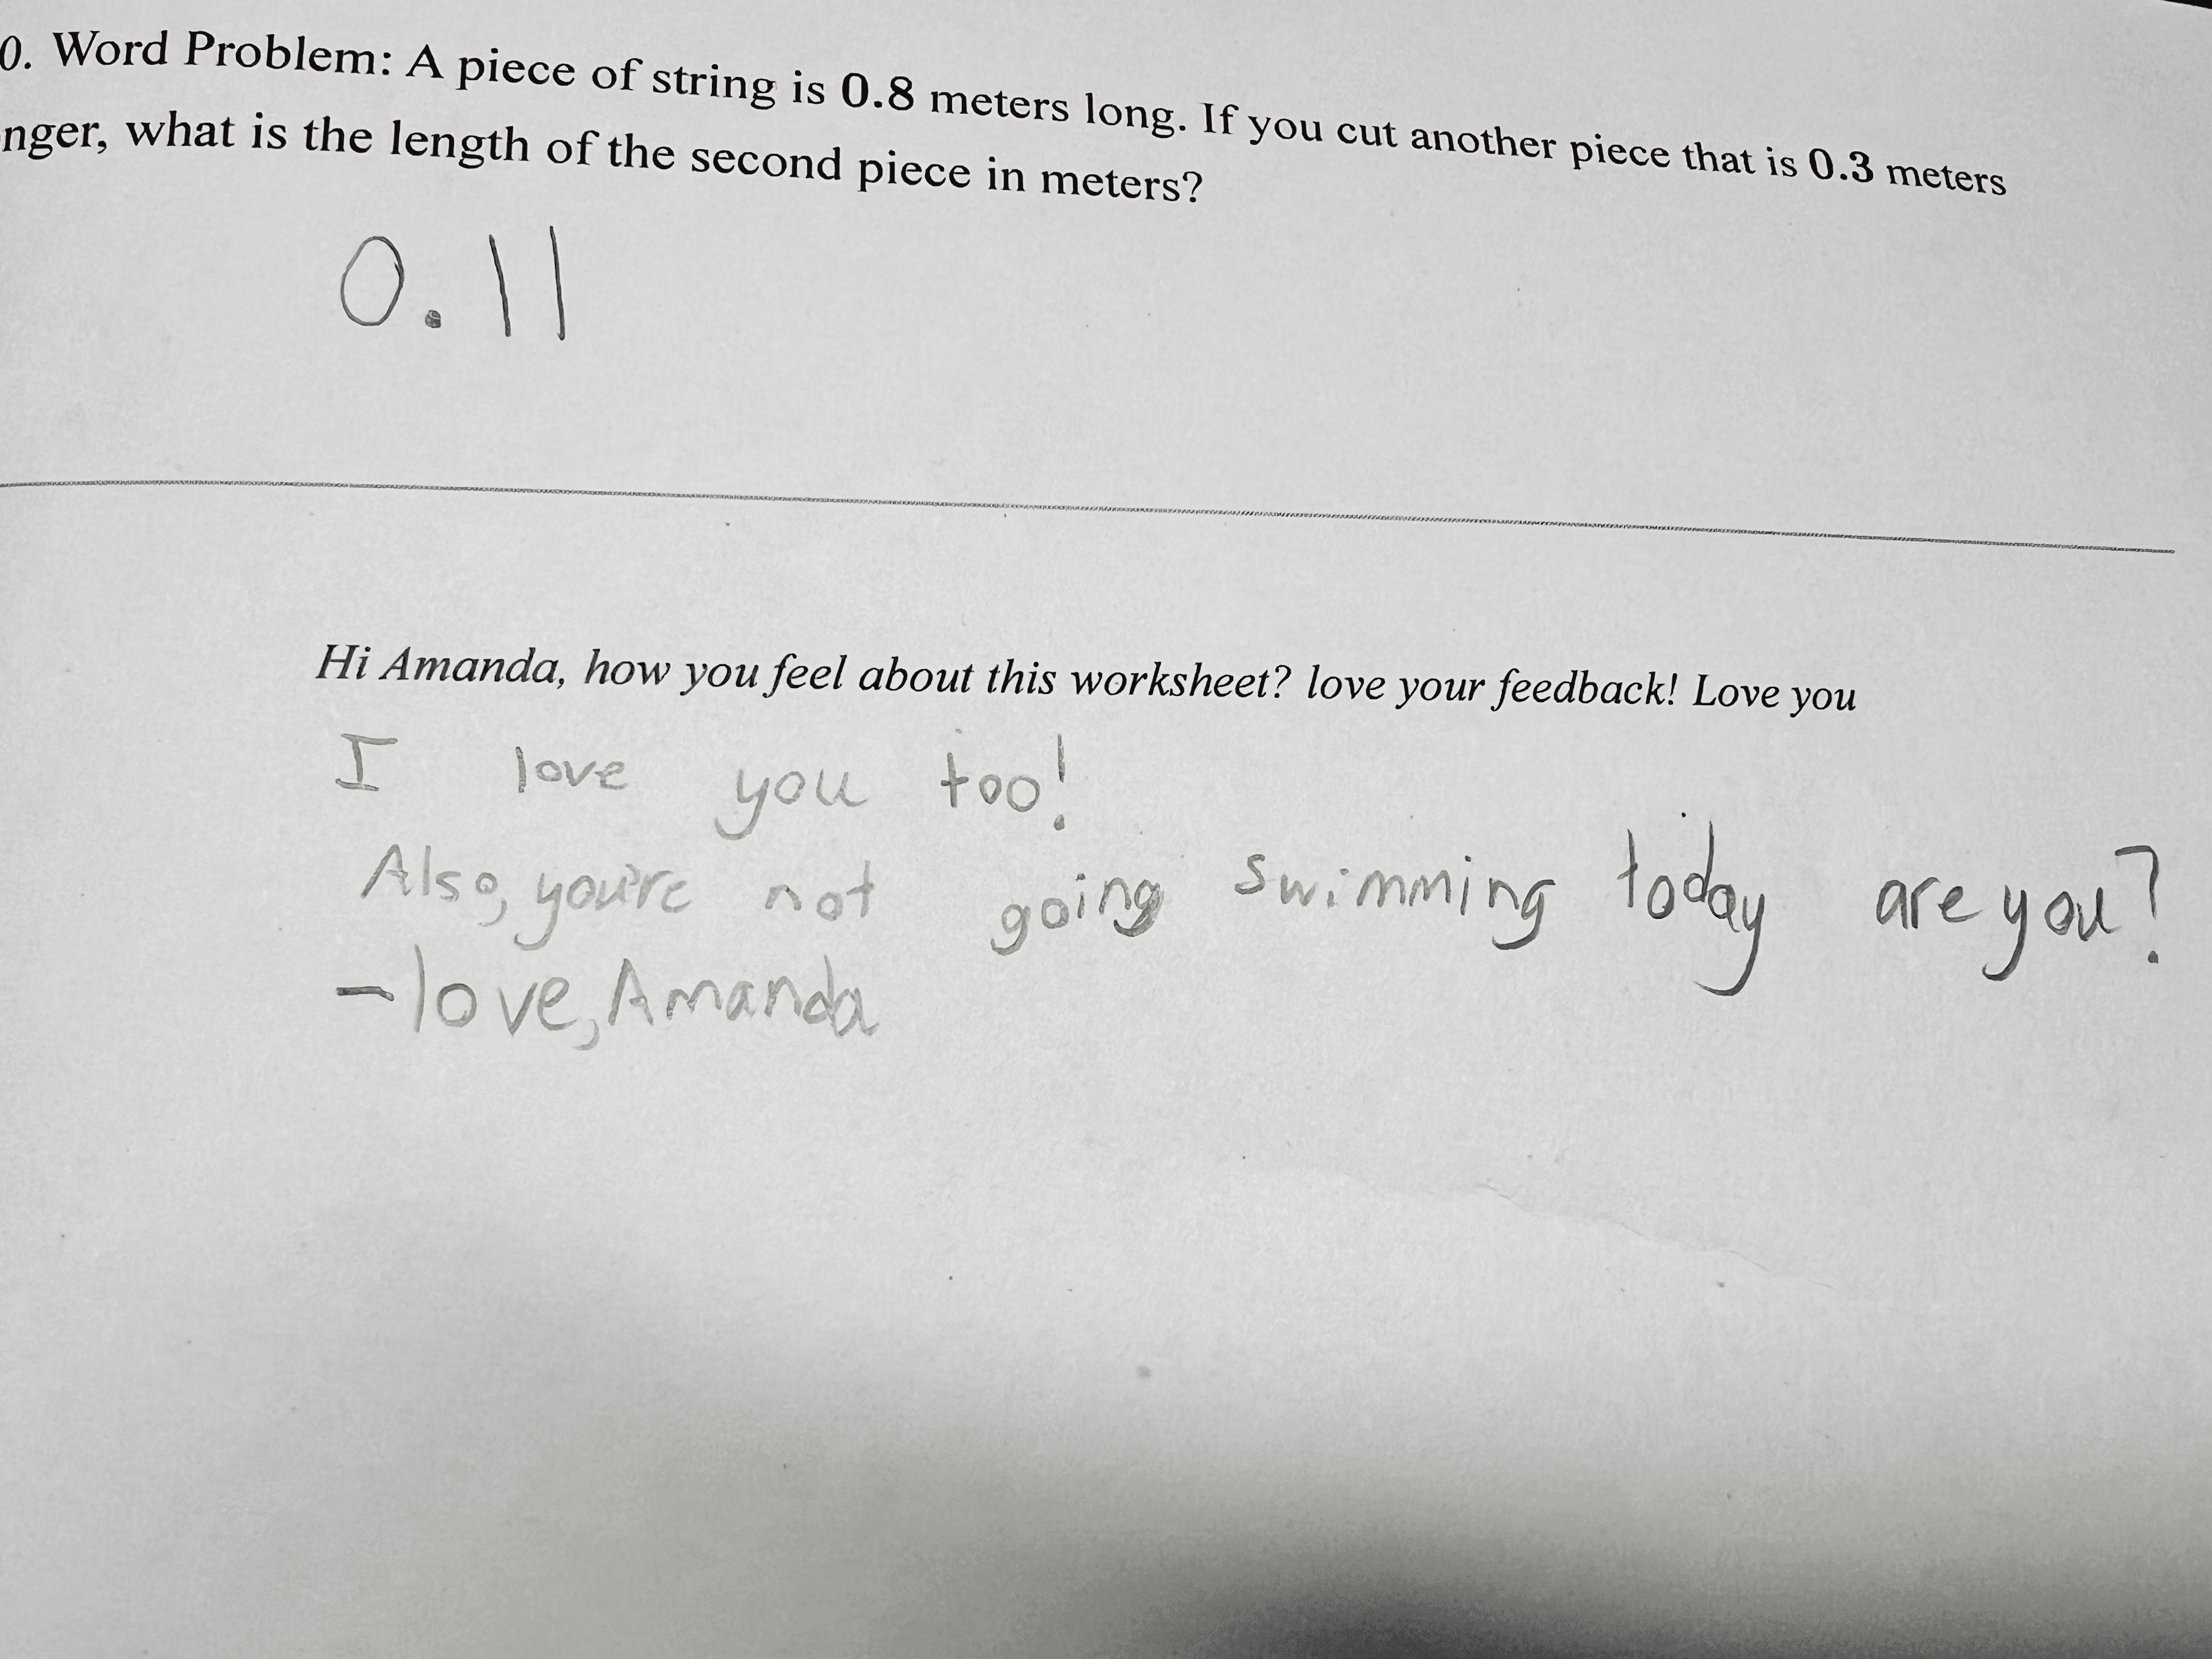 0. Word Problem: A piece of string is 0.8 meters long. If you cut another piece that is 0.3 meters
nger, what is the length of the second piece in meters?
0.11
Hi Amanda, how you feel about this worksheet? love your feedback! Love you
I love you too!
Also, you're not going swimming today are you?
-love, Amanda